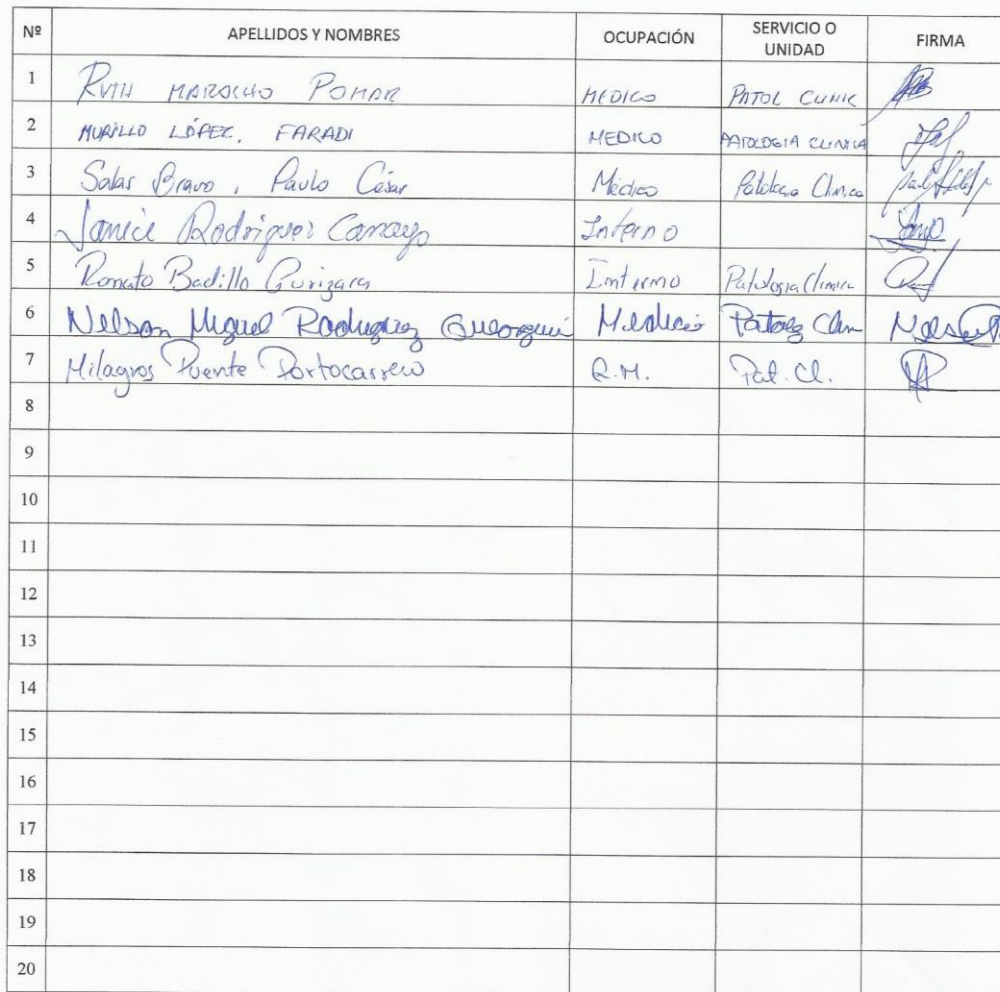 Nº APELLIDOS Y NOMBRES OCUPACIÓN SERVICIO O UNIDAD FIRMA
1 RUTH MAROCHO POMAR MEDICO PATOL CLINIC
2 MURILLO LÓPEZ, FARADI MEDICO PATOLOGIA CLINICA
3 Salas Bravo, Paulo César Médico Patologia Clinica
4 Janice Rodriguez Camayo Interno
5 Renato Badillo Interno Patologia Clinica
6 Nelson Miguel Rodriguez Medico Patolog Clin
7 Milagros Puente Portocarrero R.M. Pat. Cl.
8
9
10
11
12
13
14
15
16
17
18
19
20